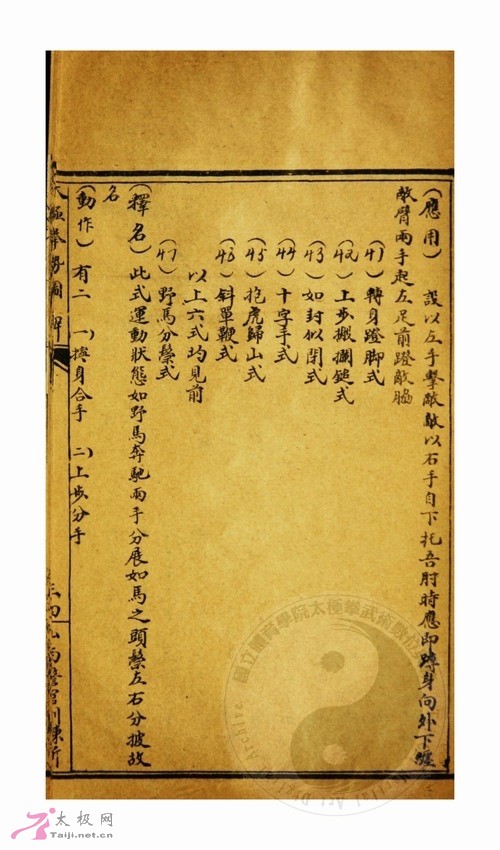 （應用）　設以左手擊敵敵以右手自下托吾肘時應即轉身向外下纏
敵臂兩手起左足前蹬敵脇
（41）轉身蹬脚式
（42）上步搬攔鎚式
（43）如封似閉式
（44）十字手式
（45）抱虎歸山式
（46）斜單鞭式
以上六式均見前
（47）野馬分鬃式
（釋名）此式運動狀態如野馬奔馳兩手分展如馬之頭鬃左右分披故
名
（動作）有二　一）摶身合手　二）上步分手
太極拳勢圖解
國立體育學院太極拳武術數位
Martial Art Digital Archive
太极网
Taiji.net.cn